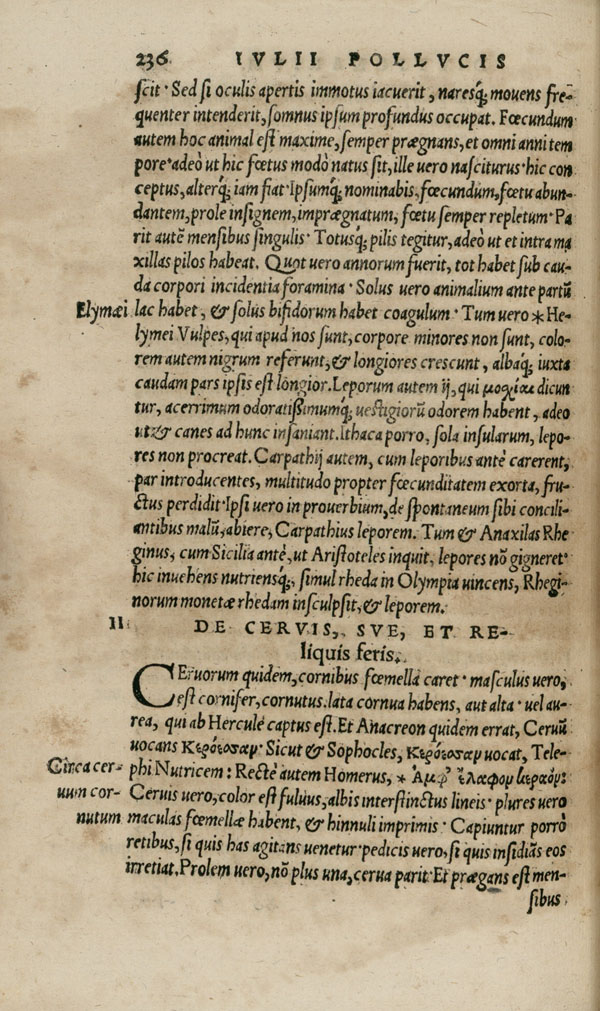 236 IVLII POLLVCIS
ſcit· Sed ſi oculis apertis immotus iacuerit, naresq́; mouens fre-
quenter intenderit, ſomnus ipſum profundus occupat. Fœcundum
autem hoc animal eſt maxime, ſemper prægnans, et omni anni tem
pore· adeò ut hic fœtus modò natus ſit, ille uero naſciturus· hic con
ceptus, alterq́; iam fiat· Ipſumq́; nominabis, fœcundum, fœtu abun-
dantem, prole inſignem, imprægnatum, fœtu ſemper repletum· Pa
rit autẽ menſibus ſingulis· Totusq́; pilis tegitur, adeò ut et intra ma
xillas pilos habeat. Quot uero annorum fuerit, tot habet ſub cau-
da corpori incidentia foramina· Solus uero animalium ante partũ
Elymæi lac habet, & ſolus bifidorum habet coagulum· Tum uero * He-
lymei Vulpes, qui apud nos ſunt, corpore minores non ſunt, colo-
rem autem nigrum referunt, & longiores creſcunt, albaq́; iuxta
caudam pars ipſis eſt longior. Leporum autem ij, qui μοχίαι dicun
tur, acerrimum odoratißimumq́; ueſtigiorũ odorem habent, adeo
ut & canes ad hunc inſaniant. Ithaca porro, ſola inſularum, lepo-
res non procreat. Carpathij autem, cum leporibus antè carerent,
par introducentes, multitudo propter fœcunditatem exorta, fru-
ctus perdidit· Ipſi uero in prouerbium, de ſpontaneum ſibi concili-
antibus malũ, abiere, Carpathius leporem. Tum & Anaxilas Rhe
ginus, cum Sicilia antè, ut Ariſtoteles inquit, lepores nõ gigneret·
hic inuehens nutriensq́;, ſimul rheda in Olympia uincens, Rhegi-
norum monetæ rhedam inſculpſit, & leporem.
II DE CERVIS, SVE, ET RE-
liquis feris.
CEruorum quidem, cornibus fœmella caret· maſculus uero,
eſt cornifer, cornutus, lata cornua habens, aut alta· uel au-
rea, qui ab Hercule captus eſt. Et Anacreon quidem errat, Ceruũ
uocans κερόεσσαν· Sicut & Sophocles, κερόεσσαν uocat, Tele-
Circa cer- phi Nutricem: Rectè autem Homerus, * Ἀμφ' ἔλαφον κεραόν:
uum cor- Ceruis uero, color eſt fuluus, albis interſtinctus lineis· plures uero
nutum maculas fœmellæ habent, & hinnuli imprimis· Capiuntur porrò
retibus, ſi quis has agitans uenetur· pedicis uero, ſi quis inſidiãs eos
irretiat. Prolem uero, nõ plus una, cerua parit· Et prægans eſt men-
ſibus